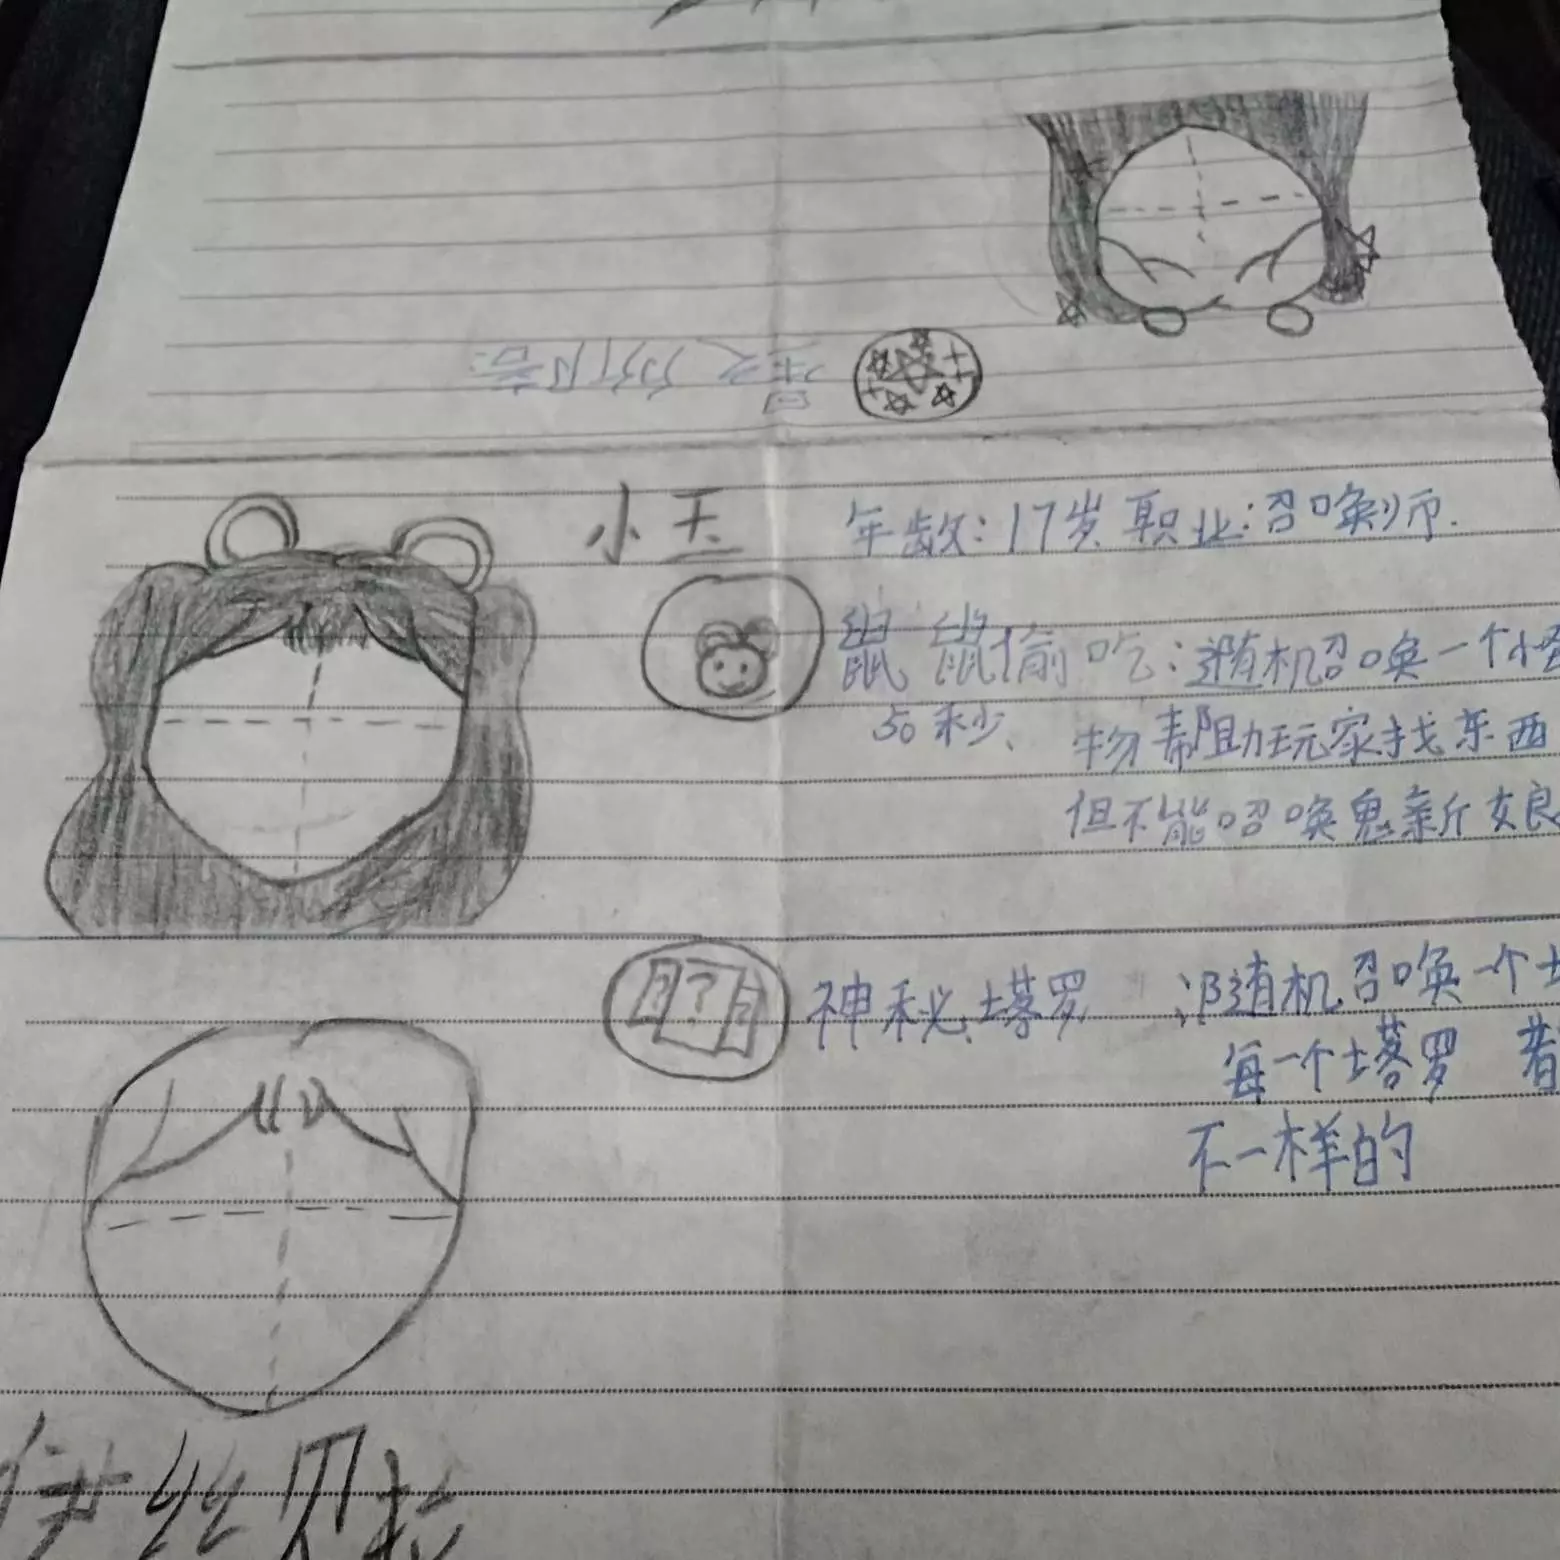 小天 年龄：17岁 职业：召唤师.
鼠鼠偷吃：随机召唤一个怪
50秒、 物帮助玩家找东西
但不能召唤鬼新娘
神秘塔罗：随机召唤一个
每一个塔罗 着
不一样的
伊丝贝拉